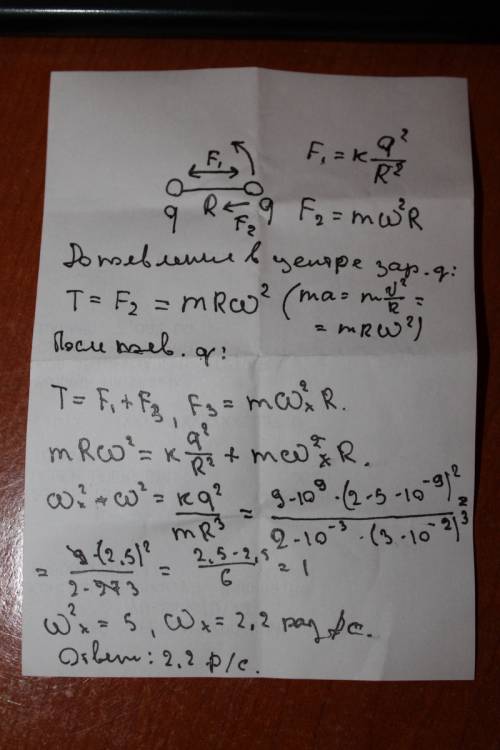 F₁ = к q²/R²
F₁
q R q
F₂
F₂ = mω²R
До появления в центре зар. q:
T = F₂ = mRω² (ma = m v²/R =
= mRω²)
После появ. q:
T = F₁ + F₃, F₃ = mωₓ²R.
mRω² = к q²/R² + mωₓ²R.
ωₓ² - ω² = кq²/mR³ = 9·10⁹·(2·5·10⁻⁹)²/2·10⁻³·(3·10⁻²)³ =
= 9·(2,5)²/2·273 = 2,5·2,5/6 = 1
ωₓ² = 5, ωₓ = 2,2 рад/с.
Ответ: 2,2 р/с.